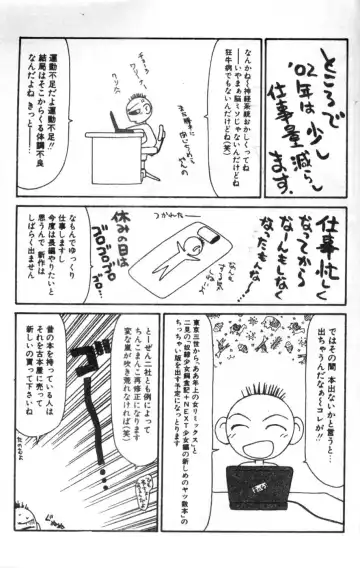 ところで
'02年は少し
仕事量減らし
ます。
なんかね～神経系統おかしくってね
――いやまぁ脳ミソじゃないんだけどね
狂牛病でもないんだけどね(笑)
運動不足だよ運動不足!!
結局はそこからくる体調不良
なんだよねきっと…
仕事忙しく
なってから
なーんもしなく
なったもんな～
つかれた――
休みの日は
ゴロゴロゴロ…
なもんでゆっくり
仕事しますし
今度は長編やりたいと
思うんで 新作は
しばらく出ません
ではその間 本出ないかと言うと…
出ちゃうんだなぁ～コレが!!
東京三世から、「ああ年上の女リミックス」と
二見の「奴隷少女飼育記+NEXT少女編の新しめのヤツ数本」の
ちっちゃい版を出す予定になっとります
とーぜん二社とも例によって
ちんこまんこ再修正になります
変な嵐が吹き荒れなければ(笑)
で…
昔の本を持っている人は
それを古本屋に売って
新しいの買って下さいね
たのむよ